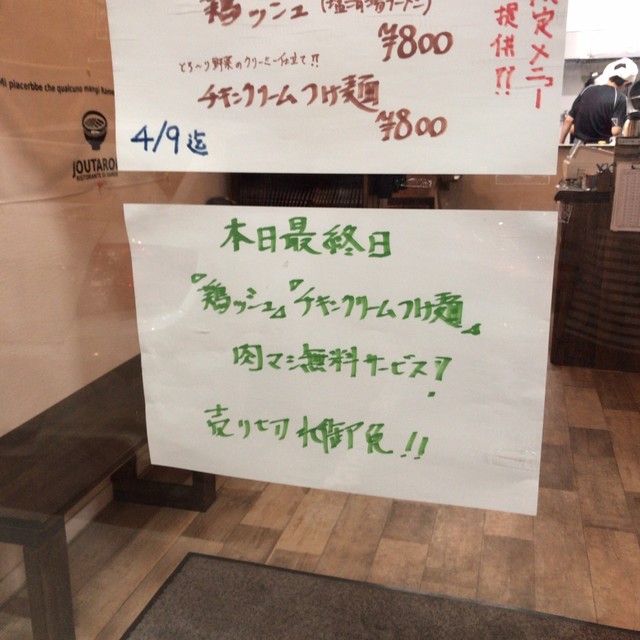 鶏ッシュ(塩清湯ラーメン)
¥800
とろ〜り野菜のクリーミー仕立て!!
チキンクリームつけ麺
¥800
4/9迄
定メニュー
提供!!
Mi piacerbbe che qualcuno mangi
JOUTARO
本日最終日
『鶏ッシュ』『チキンクリームつけ麺』
肉マシ無料サービス!
売り切れ御免!!